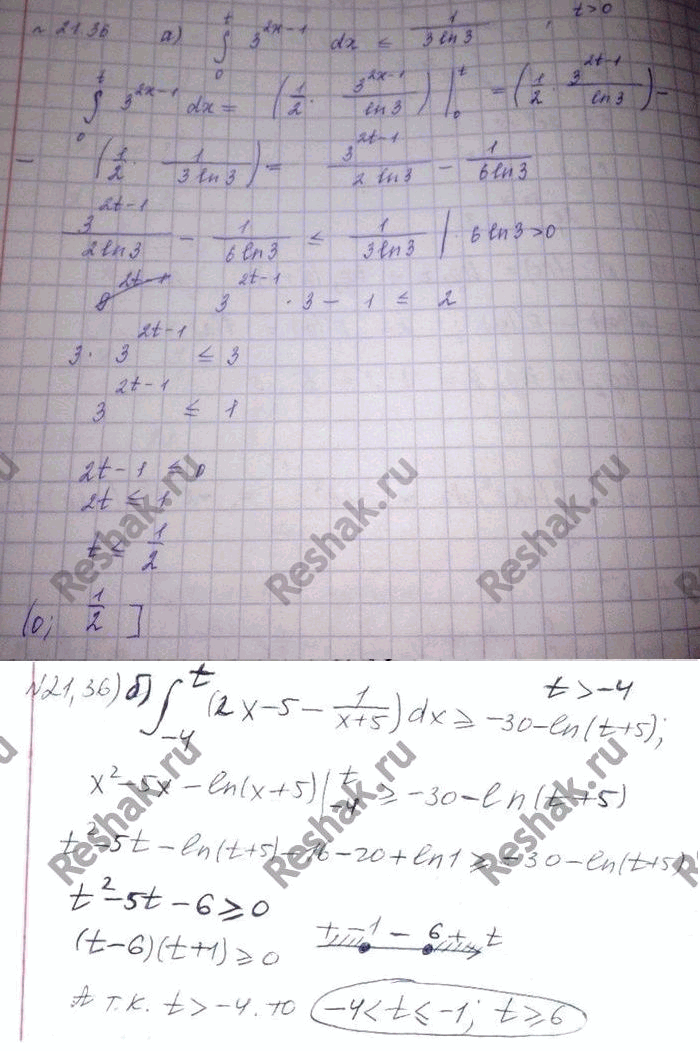 № 21.36 а) ∫₀ᵗ 3^{2x-1} dx ≤ 1/(3 ln3) , t>0
∫₀ᵗ 3^{2x-1} dx = (1/2 · 3^{2x-1}/ln3) |₀ᵗ = (1/2 · 3^{2t-1}/ln3) -
- (1/2 · 1/(3 ln3)) = 3^{2t-1}/(2 ln3) - 1/(6 ln3)
3^{2t-1}/(2 ln3) - 1/(6 ln3) ≤ 1/(3 ln3) | · 6 ln3 > 0
3^{2t-1} · 3 - 1 ≤ 2
3 · 3^{2t-1} ≤ 3
3^{2t-1} ≤ 1
2t - 1 ≤ 0
2t ≤ 1
t ≤ 1/2
(0; 1/2 ]
№21,36) б) ∫₋₄ᵗ (2x-5 - 1/(x+5)) dx ≥ -30-ln(t+5); t>-4
x²-5x-ln(x+5) |₋₄ᵗ ≥ -30-ln(t+5)
t²-5t-ln(t+5)-16-20+ln1 ≥ -30-ln(t+5)
t²-5t-6 ≥ 0
(t-6)(t+1) ≥ 0 + -1 - 6 + t
А т.к. t > -4, то -4 < t ≤ -1; t ≥ 6
Reshak.ru
Reshak.ru
Reshak.ru
Reshak.ru
Reshak.ru
Reshak.ru